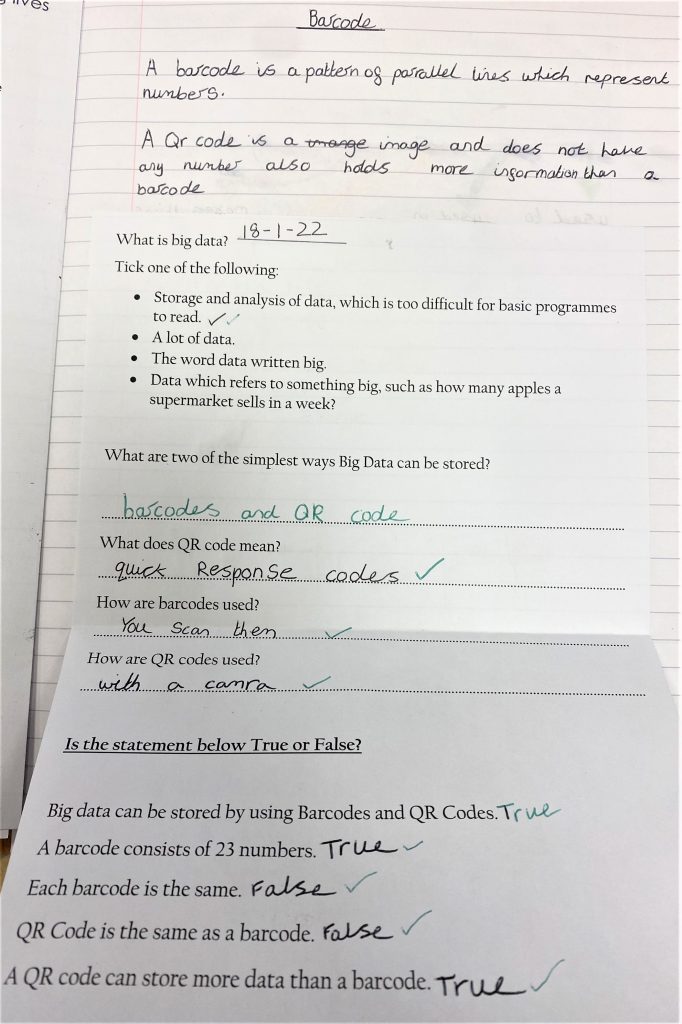 ives
Barcode
A barcode is a pattern of parrallel lines which represent
numbers.
A Qr code is a image and does not have
any number also holds more information than a
barcode
What is big data? 18-1-22
Tick one of the following:
• Storage and analysis of data, which is too difficult for basic programmes
to read. ✓✓
• A lot of data.
• The word data written big.
• Data which refers to something big, such as how many apples a
supermarket sells in a week?
What are two of the simplest ways Big Data can be stored?
barcodes and QR code
What does QR code mean?
quick Response codes ✓
How are barcodes used?
You scan then ✓
How are QR codes used?
with a camra ✓
Is the statement below True or False?
Big data can be stored by using Barcodes and QR Codes. True
A barcode consists of 23 numbers. True ✓
Each barcode is the same. False ✓
QR Code is the same as a barcode. False ✓
A QR code can store more data than a barcode. True ✓